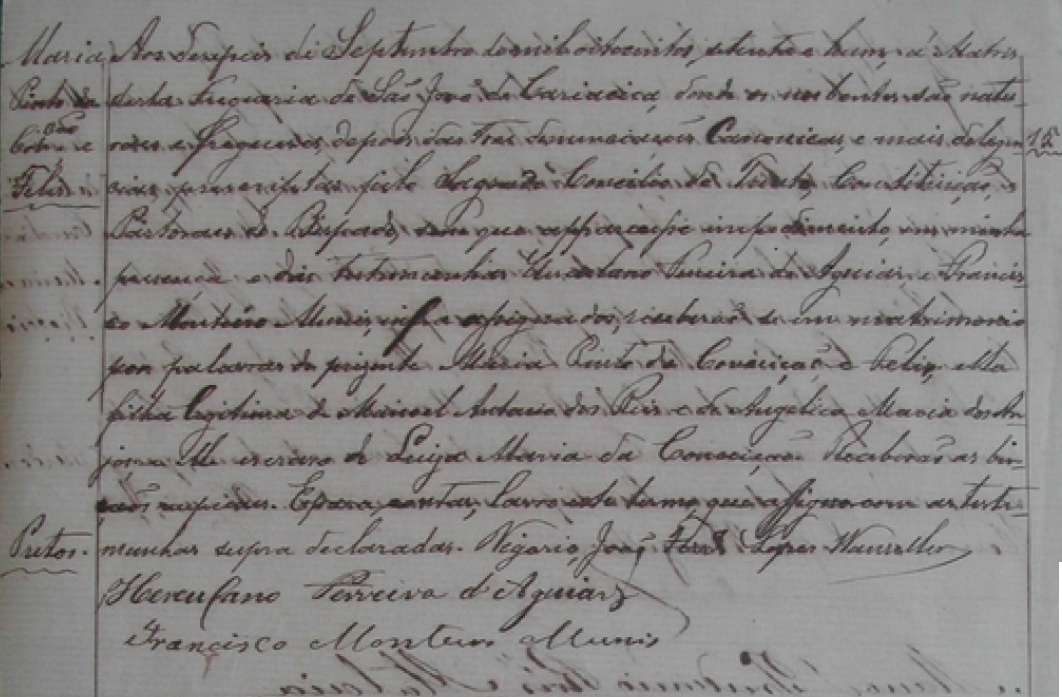 Maria
Pinto da
Con
ção
e
Felis
Pretos.
Aos deseseis de Septembro de mil oitocentos setenta e hum, á Matris
desta Freguezia de São João de Cariacica, donde os nubentes são natu-
raes e freguezes, depois das tres denunciaçoens Canonicas, e mais deligen
15
cias prescriptas pelo Sagrado Concilio de Trento, Constituição, e
Pastoraes do Bispado, sem que apparecesse impedimento, em minha
presença e das testemunhas Herculano Pereira de Aguiar, e Francis
co Monteiro Munis, assignados, receberão se em matrimonio
por palavras de prezente Maria Pinto da Conceição e Felis, ella
filha legitima de Manoel Antonio dos Reis e de Angelica Maria dos An
jos, e elle escravo de Luiza Maria da Conceição. Receberão as ben-
çaõs nupciaes. E para constar, lavro este termo, que assigno com as teste-
munhas supra declaradas. Vigario, João Lopes Wanzeller
Herculano Perreira d'Aguiar
Francisco Monteiro Munis